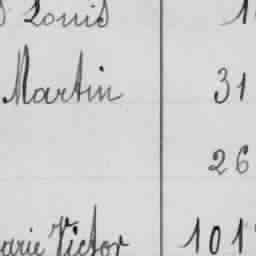 Louis
Martin 31
26
Victor 101